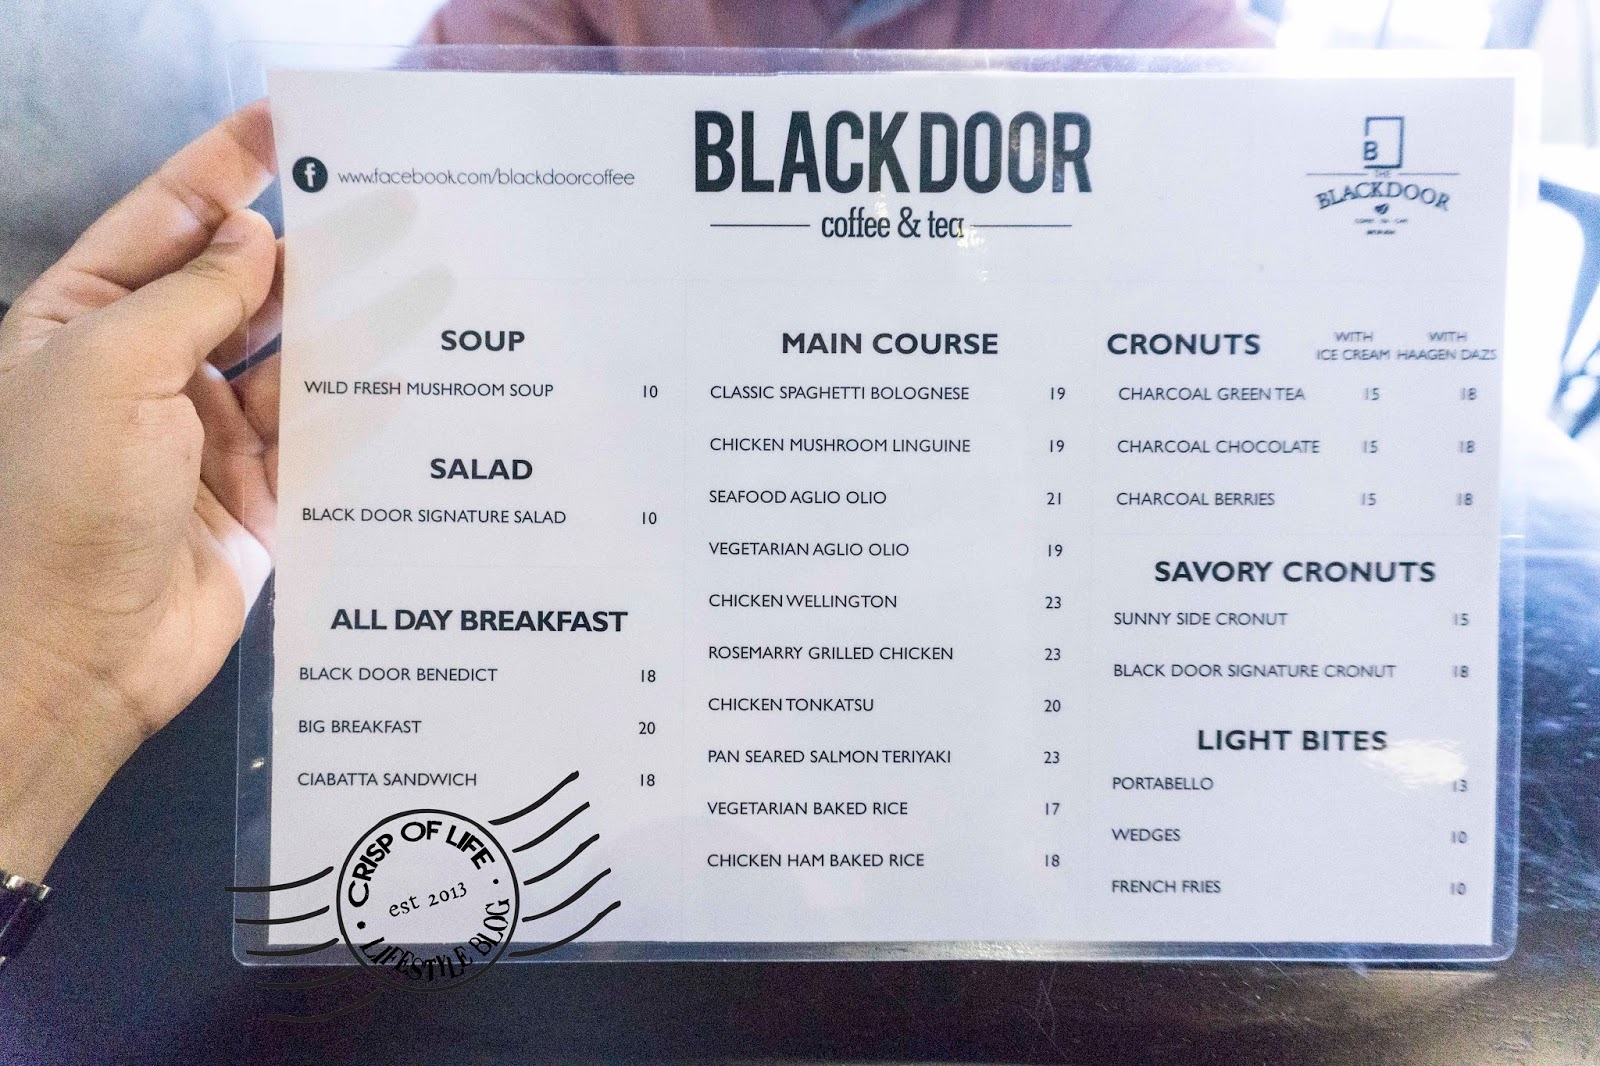 www.facebook.com/blackdoorcoffee
BLACKDOOR
coffee & tea
B
THE
BLACKDOOR
SOUP
WILD FRESH MUSHROOM SOUP 10
SALAD
BLACK DOOR SIGNATURE SALAD 10
ALL DAY BREAKFAST
BLACK DOOR BENEDICT 18
BIG BREAKFAST 20
CIABATTA SANDWICH 18
MAIN COURSE
CLASSIC SPAGHETTI BOLOGNESE 19
CHICKEN MUSHROOM LINGUINE 19
SEAFOOD AGLIO OLIO 21
VEGETARIAN AGLIO OLIO 19
CHICKEN WELLINGTON 23
ROSEMARRY GRILLED CHICKEN 23
CHICKEN TONKATSU 20
PAN SEARED SALMON TERIYAKI 23
VEGETARIAN BAKED RICE 17
CHICKEN HAM BAKED RICE 18
CRONUTS WITH ICE CREAM WITH HAAGEN DAZS
CHARCOAL GREEN TEA 15 18
CHARCOAL CHOCOLATE 15 18
CHARCOAL BERRIES 15 18
SAVORY CRONUTS
SUNNY SIDE CRONUT 15
BLACK DOOR SIGNATURE CRONUT 18
LIGHT BITES
PORTABELLO 13
WEDGES 10
FRENCH FRIES 10
CRISP OF LIFE
est 2013
LIFESTYLE BLOG